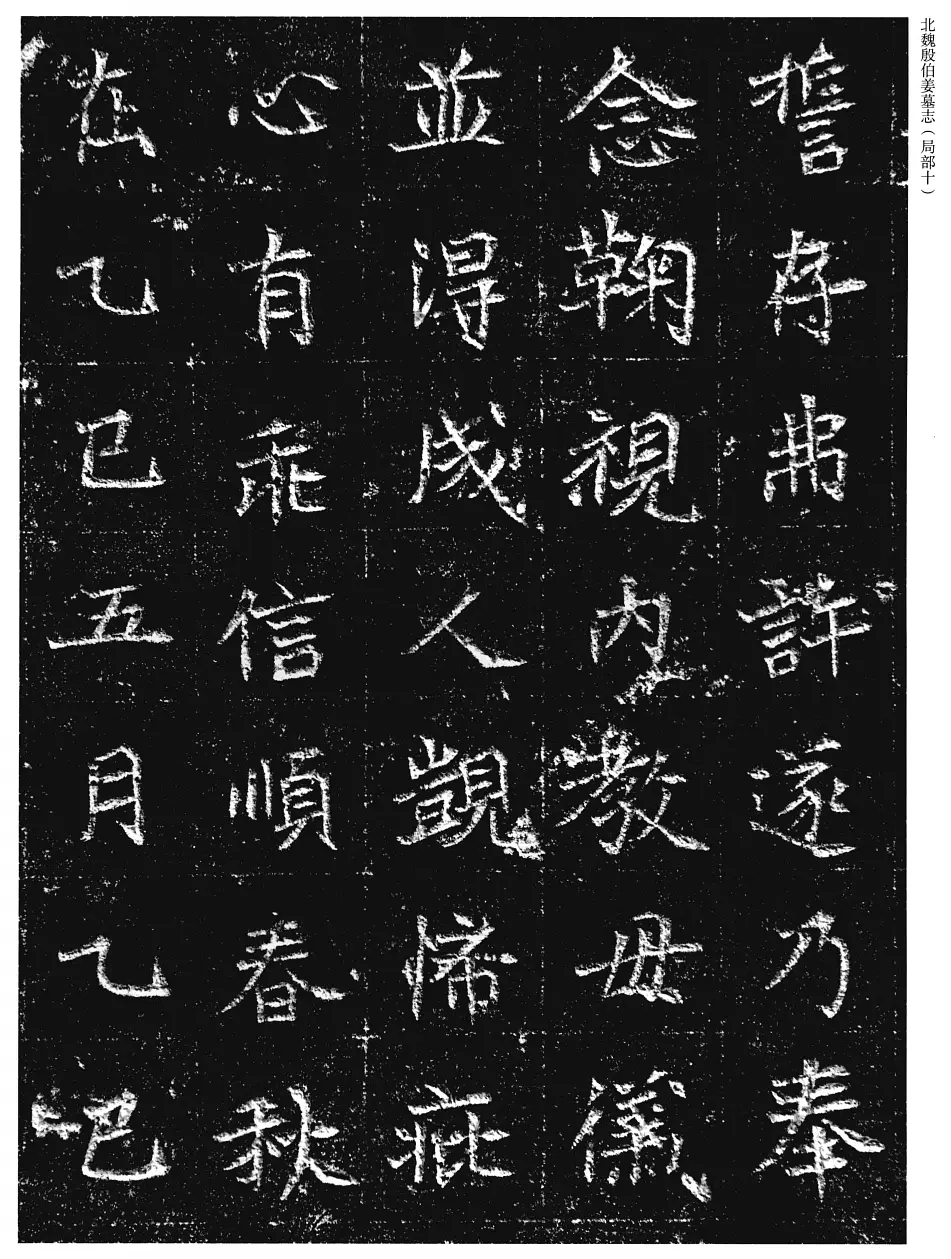 北魏殷伯姜墓志（局部十）
誓存弗許遂乃奉
念鞠視内教毋儀
並淂成人覬悕疵
心有乖信順春秋
在乙巳五月乙巳